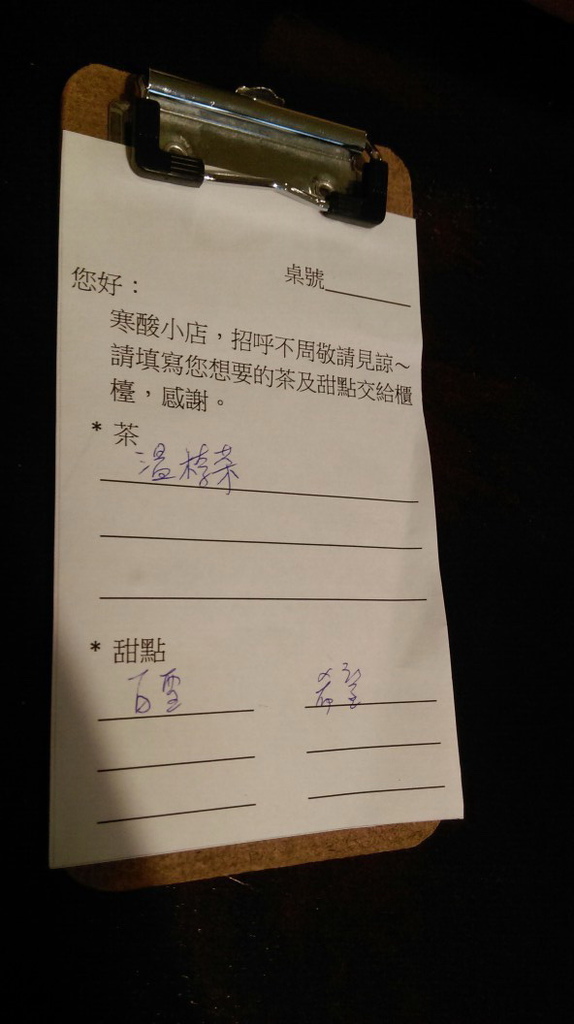 桌號
您好：
寒酸小店，招呼不周敬請見諒～
請填寫您想要的茶及甜點交給櫃
檯，感謝。
* 茶
* 甜點
白雪 希望